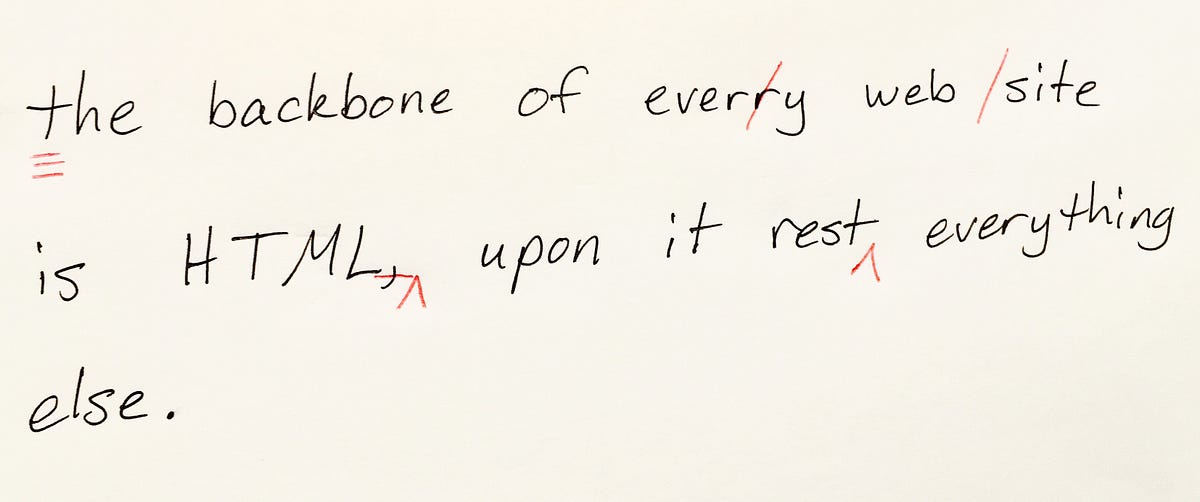 the backbone of everry web site
is HTML, upon it rest everything
else.